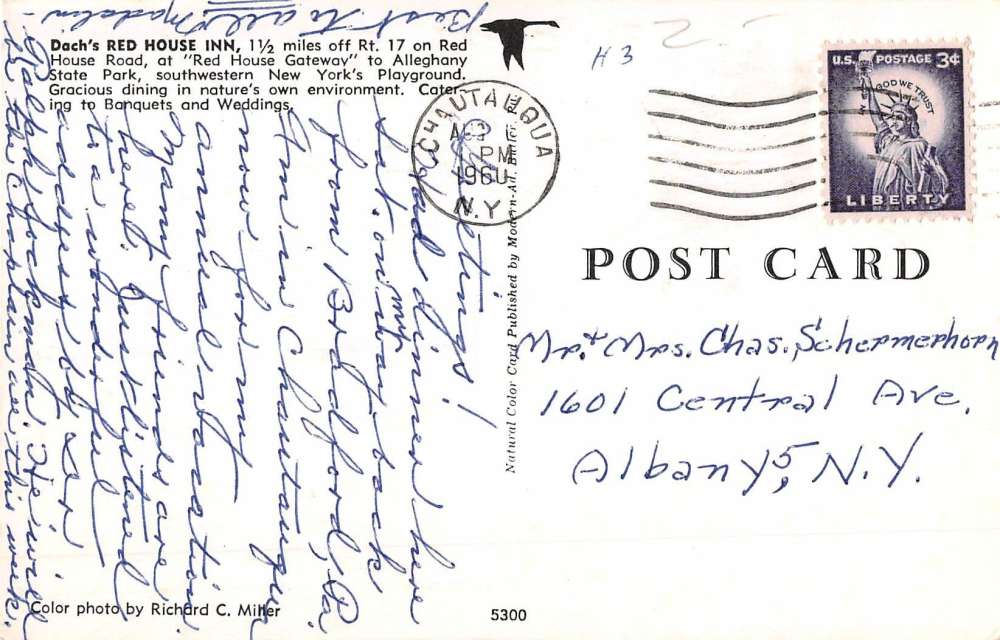 Dach's RED HOUSE INN, 1½ miles off Rt. 17 on Red
House Road, at "Red House Gateway" to Alleghany
State Park, southwestern New York's Playground.
Gracious dining in nature's own environment. Cater-
ing to Banquets and Weddings.
Greetings!
Had dinner here
Sat. on my way back
from Bradford, Pa
Am in Chautauqua
now for my
annual vacation.
Many friends are
here. Just listened
to a wonderful
address by Dr
Ralph Sockman. He will
be the Chaplain all this week.
Best to all, Madolin
Color photo by Richard C. Miller
5300
Natural Color Card Published by Modern-Ad, Butler, Pa.
H 3
CHAUTAUQUA
AUG
PM
1960
N.Y.
U.S. POSTAGE 3¢
IN GOD WE TRUST
LIBERTY
POST CARD
Mr. + Mrs. Chas. Schermerhorn
1601 Central Ave.
Albany 5, N.Y.